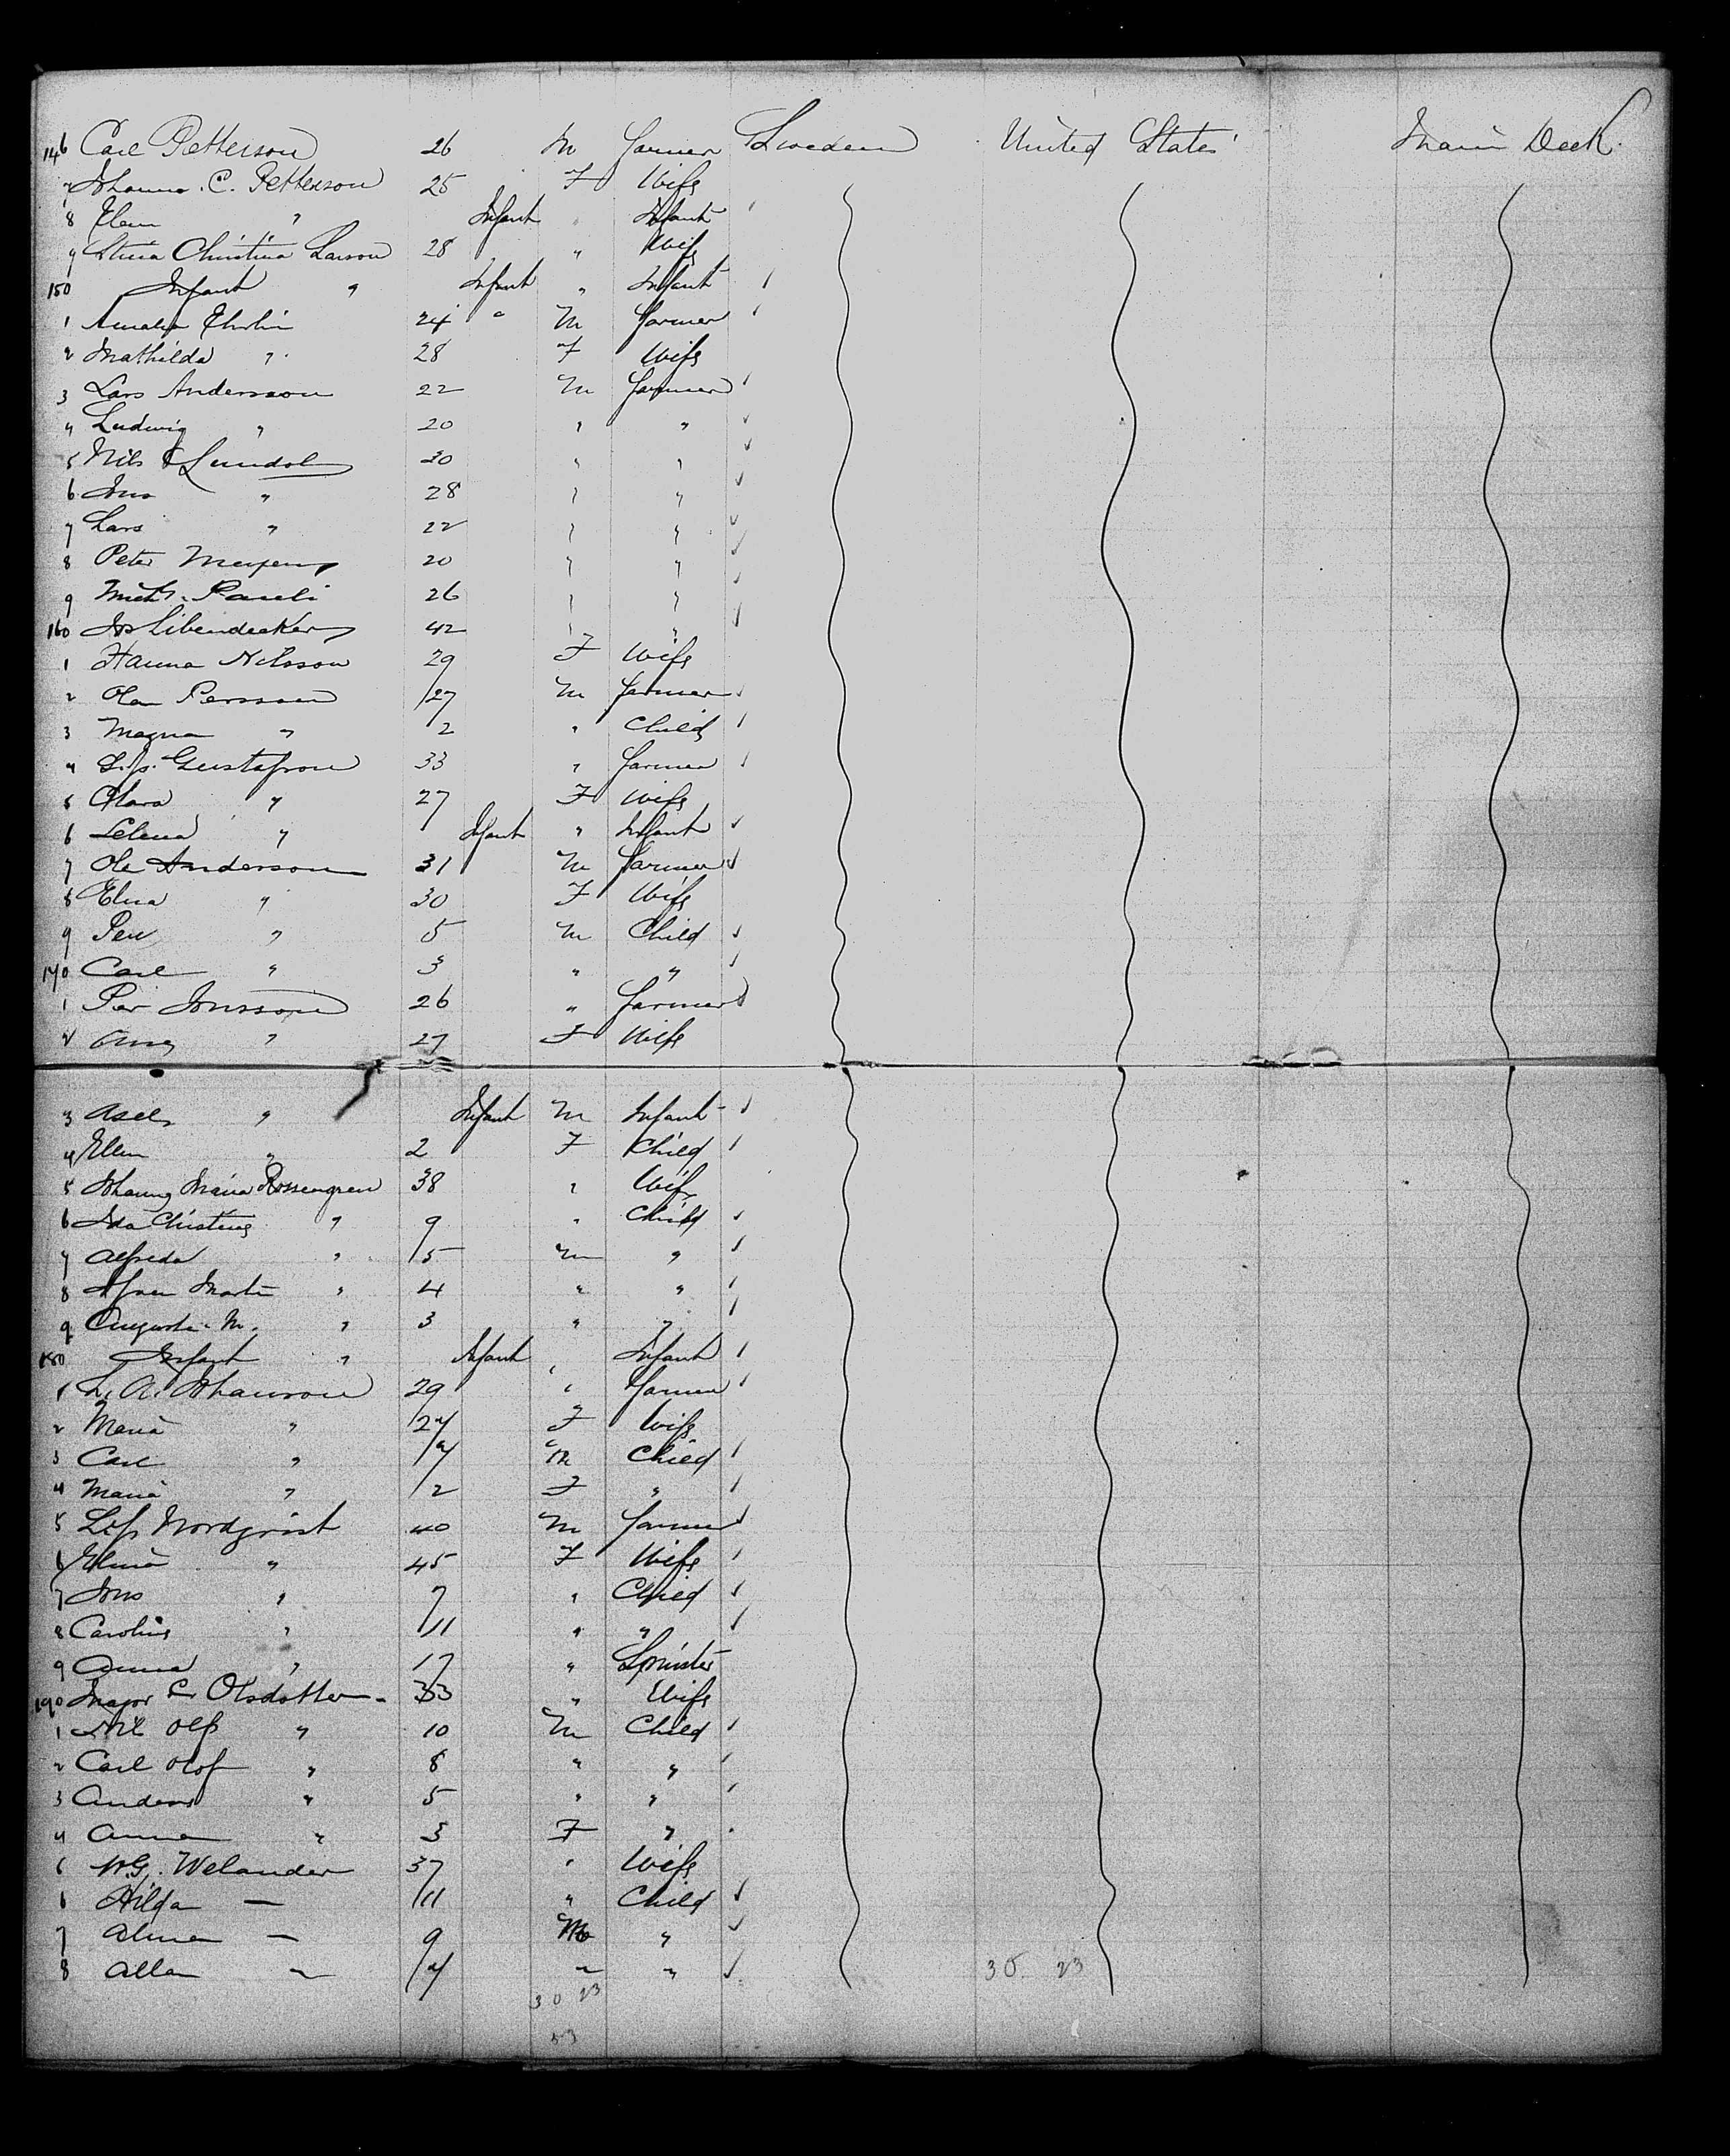 146 Carl Petterson 26 M farmer Sweden United States Main Deck
7 Johanna C. Petterson 25 F Wife
8 Elen " Infant " Infant
9 Stina Christina Larson 28 " Wife
150 Infant " Infant " Infant
1 Amalia 24 " M farmer
2 Mathilda " 28 F Wife
3 Lars Andersson 22 M farmer
4 Ludwig " 20 " "
5 Nils 30 " "
6 Jns " 28 " "
7 Lars " 22 " "
8 Peter 20 " "
9 Pauli 26 " "
160 Jos Libendecker 42 " "
1 Hanna Nilsson 29 F Wife
2 Ola Persson 27 M farmer
3 Magna " 2 " Child
4 Gustafson 33 " farmer
5 Clara " 27 F Wife
6 Selena " Infant " Infant
7 Ole Anderson 31 M farmer
8 Elna " 30 F Wife
9 Per " 5 M Child
170 Carl " 3 " "
1 Per Jonsson 26 " farmer
2 " 27 F Wife
3 Axel " Infant M Infant
4 Ellen " 2 F Child
5 Johanna Maria Rossengren 38 " Wife
6 Ida Christina " 9 " Child
7 Alfreda " 5 M "
8 " 4 " "
9 August M. " 3 " "
180 Infant " Infant " Infant
1 L. A. Johanson 29 " farmer
2 Maria " 24 F Wife
3 Carl " 4 M Child
4 Maria " 2 F "
5 Nordqvist 40 M farmer
6 Elina " 45 F Wife
7 Jns " 7 " Child
8 Carolina " 11 " "
9 Anna " 17 " Spinster
190 Major Olsdotter 33 " Wife
1 " 10 M Child
2 Carl Olof " 8 " "
3 Anders " 5 " "
4 Anna " 3 F "
5 Welander 37 " Wife
6 Hilda — 11 " Child
7 Alma — 9 M "
8 Allan " 4 " "
30 23
30 23
53